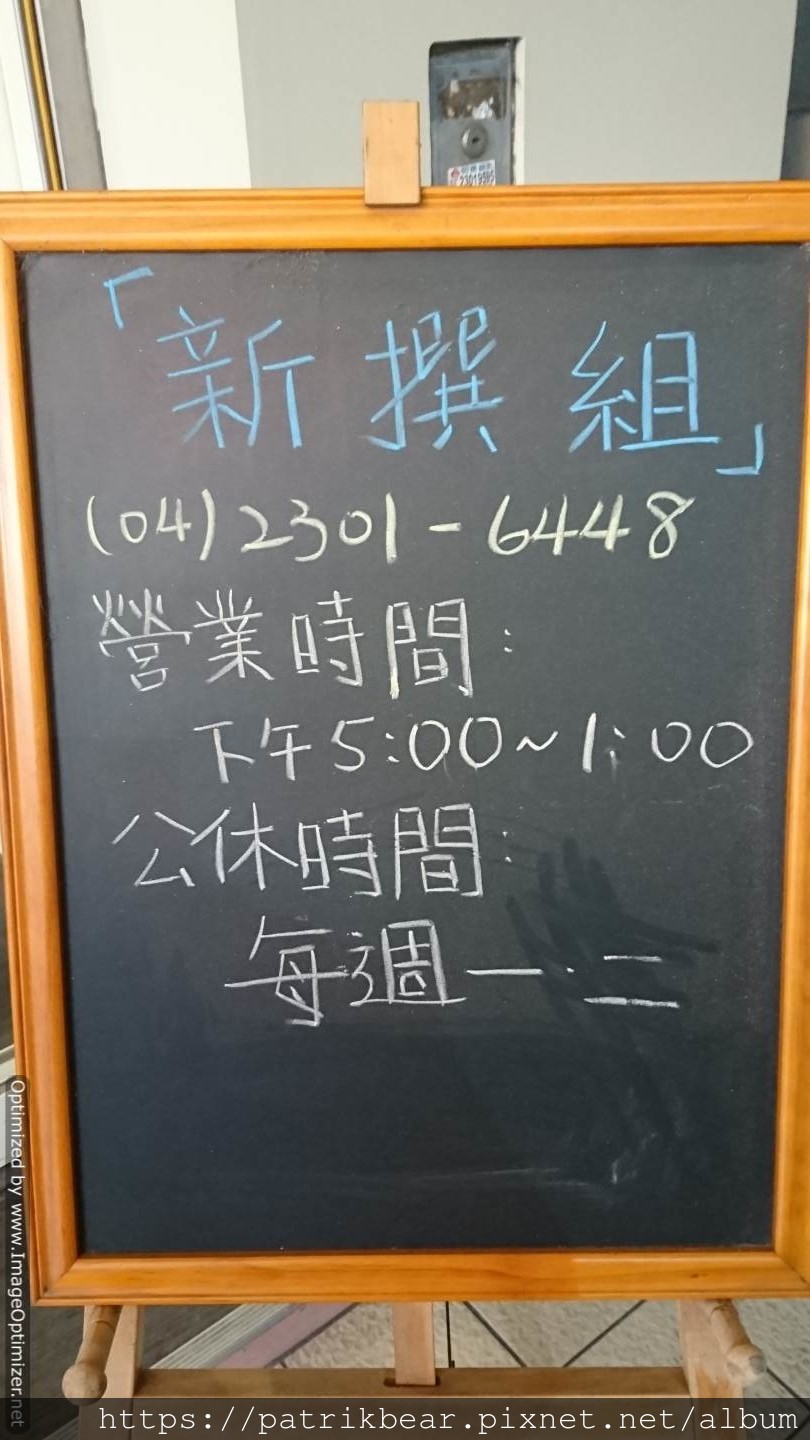 23019595
「新撰組」
(04)2301-6448
營業時間:
下午5:00~1:00
公休時間:
每週一·二
Optimized by www.ImageOptimizer.net
https://patrikbear.pixnet.net/album